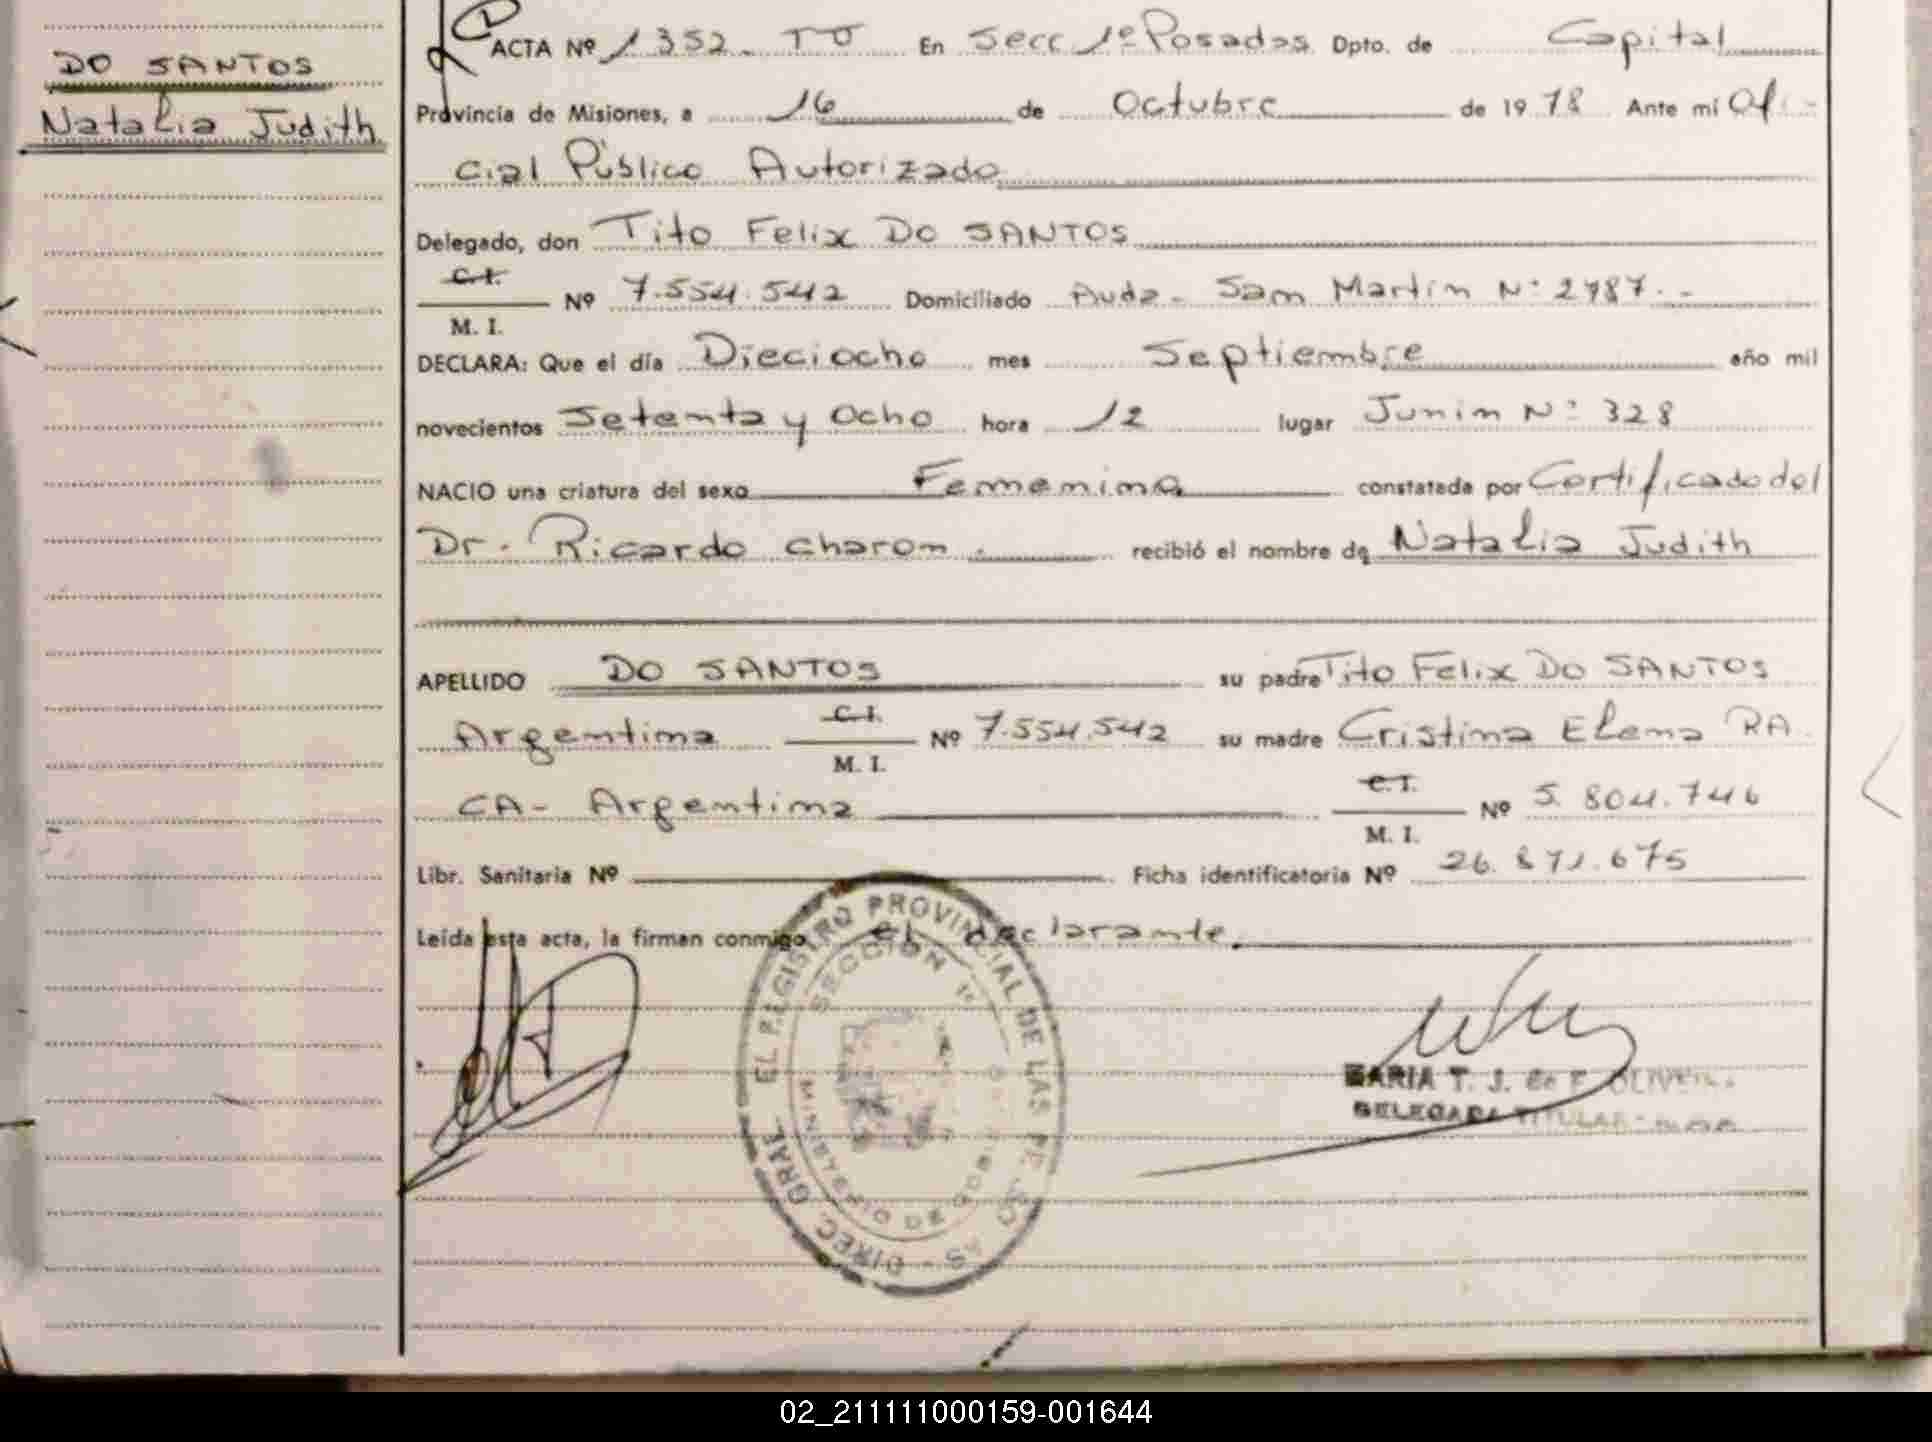 DO SANTOS
Natalia Judith
ACTA Nº 1352. TU En Secc 1º Posadas Dpto. de Capital
Provincia de Misiones, a 16 de Octubre de 1978 Ante mí Ofi-
cial Público Autorizado
Delegado, don Tito Felix DO SANTOS
C.I.
M. I.
Nº 7.554.542 Domiciliado Avda. San Martin Nº 2787.-
DECLARA: Que el día Dieciocho mes Septiembre año mil
novecientos Setenta y Ocho hora 12 lugar Junin Nº 328
NACIO una criatura del sexo Femenino constatada por Certificado del
Dr. Ricardo Charon. recibió el nombre de Natalia Judith
APELLIDO DO SANTOS su padre Tito Felix DO SANTOS
Argentina C.I. M. I. Nº 7.554.542 su madre Cristina Elena RA
CA- Argentina C.I. M. I. Nº 5.804.746
Libr. Sanitaria Nº Ficha identificatoria Nº 26.871.675
Leída esta acta, la firman conmigo el declarante.
DIREC. GRAL. EL REGISTRO PROVINCIAL DE LAS PE
SECCION 1º
MINISTERIO DE GOBI
MARIA T. J. de F. OLIVEIRA
DELEGADA TITULAR
02_211111000159-001644